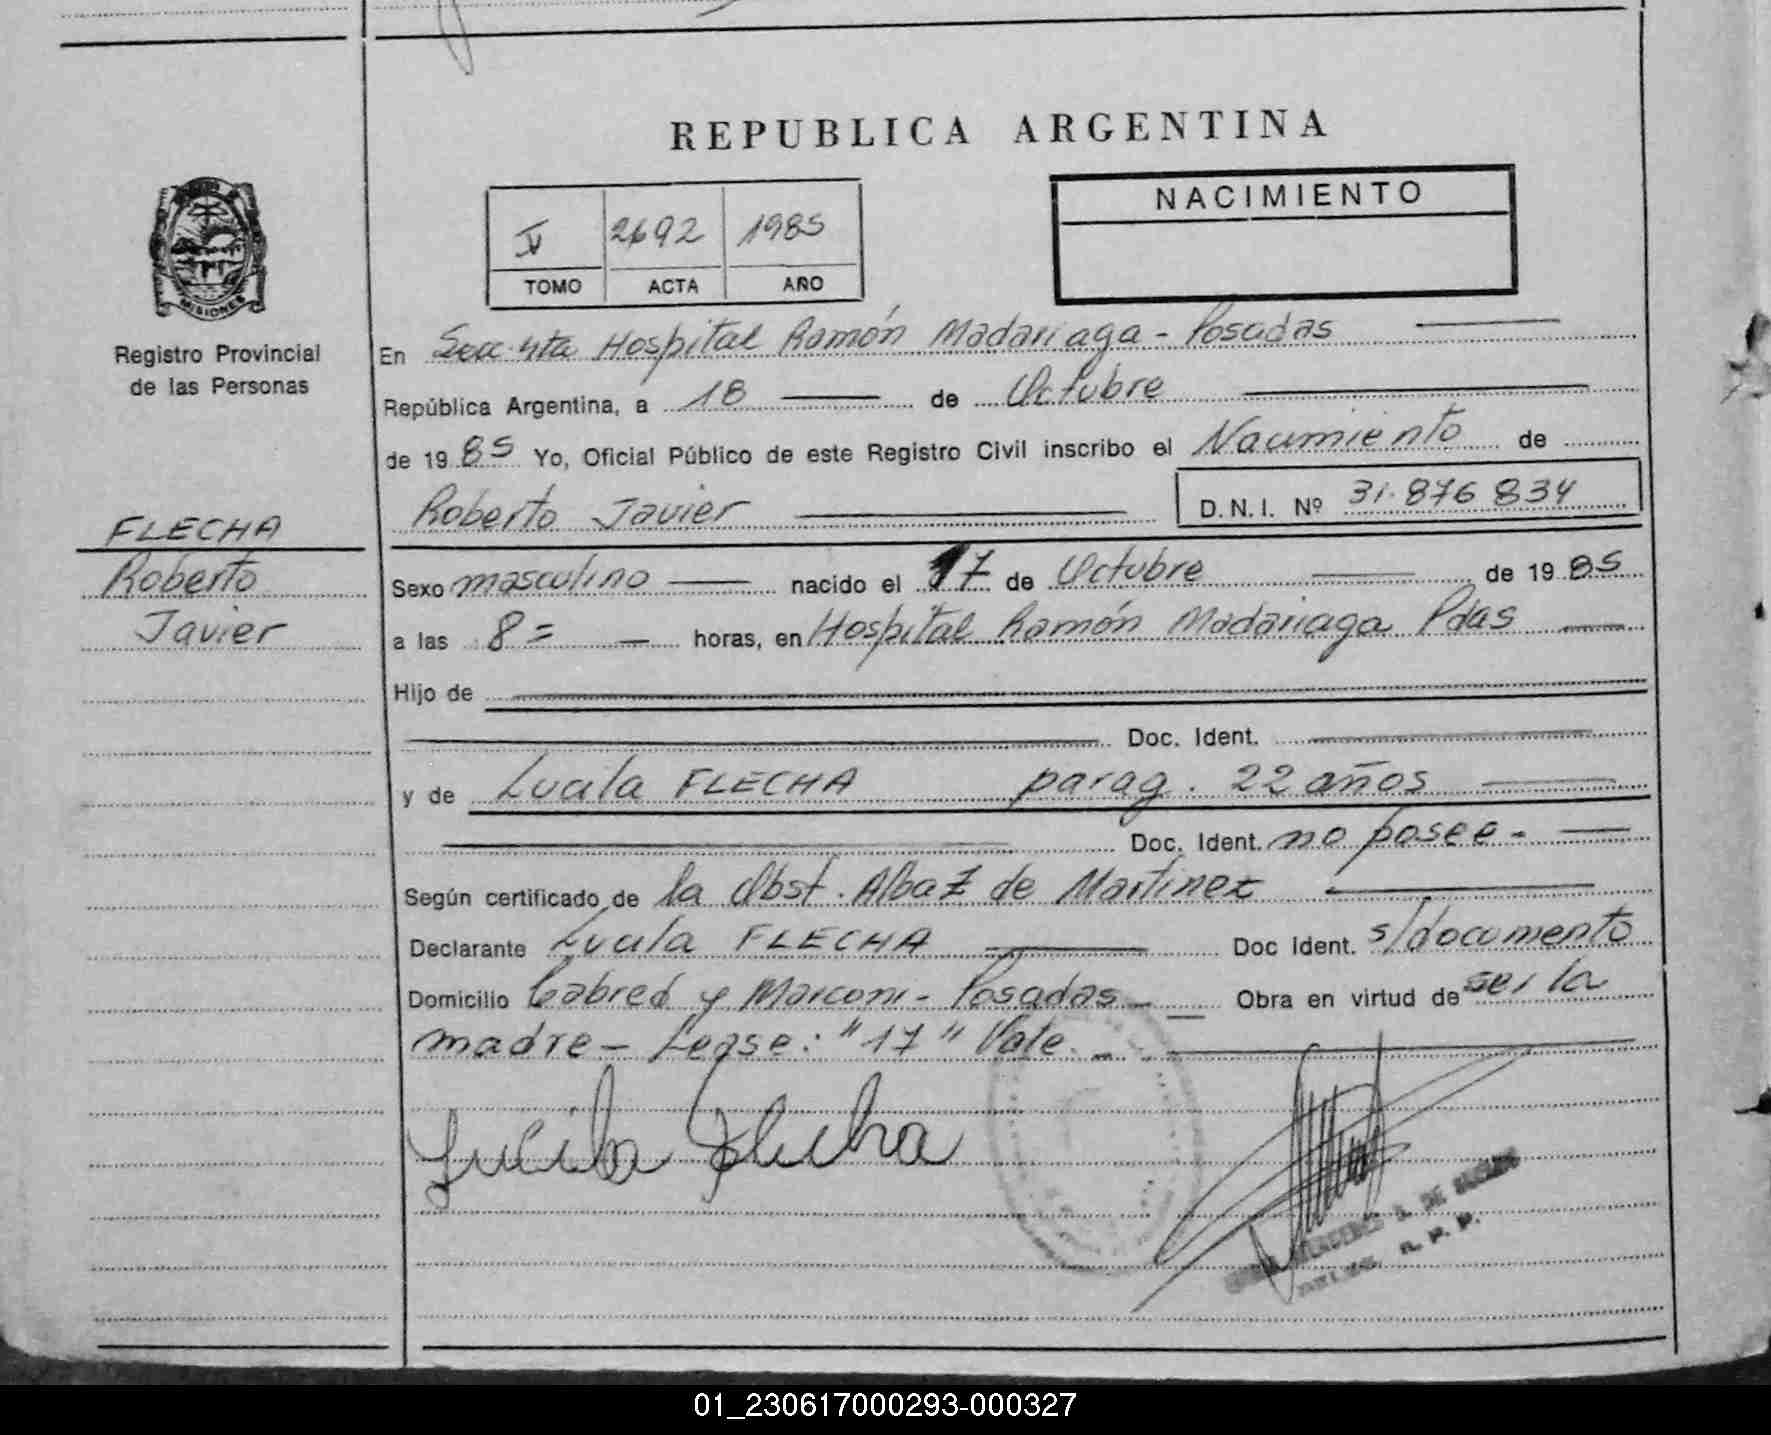 REPUBLICA ARGENTINA
NACIMIENTO
V 2692 1985
TOMO ACTA AÑO
MISIONES
Registro Provincial
de las Personas
En Secc. 4ta Hospital Ramón Madariaga - Posadas
República Argentina, a 18 de Octubre
de 1985 Yo, Oficial Público de este Registro Civil inscribo el Nacimiento de
Roberto Javier D.N.I. Nº 31.876834
FLECHA
Roberto
Javier
Sexo masculino nacido el 17 de Octubre de 1985
a las 8= horas, en Hospital Ramón Madariaga Pdas
Hijo de
Doc. Ident.
y de Lucila FLECHA parag. 22 años
Doc. Ident. no posee -
Según certificado de la Obst. Alba Z de Martinez
Declarante Lucila FLECHA Doc Ident. s/documento
Domicilio Cabred y Marconi - Posadas Obra en virtud de ser la
madre - Lease: "17" Vale.
Lucila Flecha
DE
R. P. P.
01_230617000293-000327